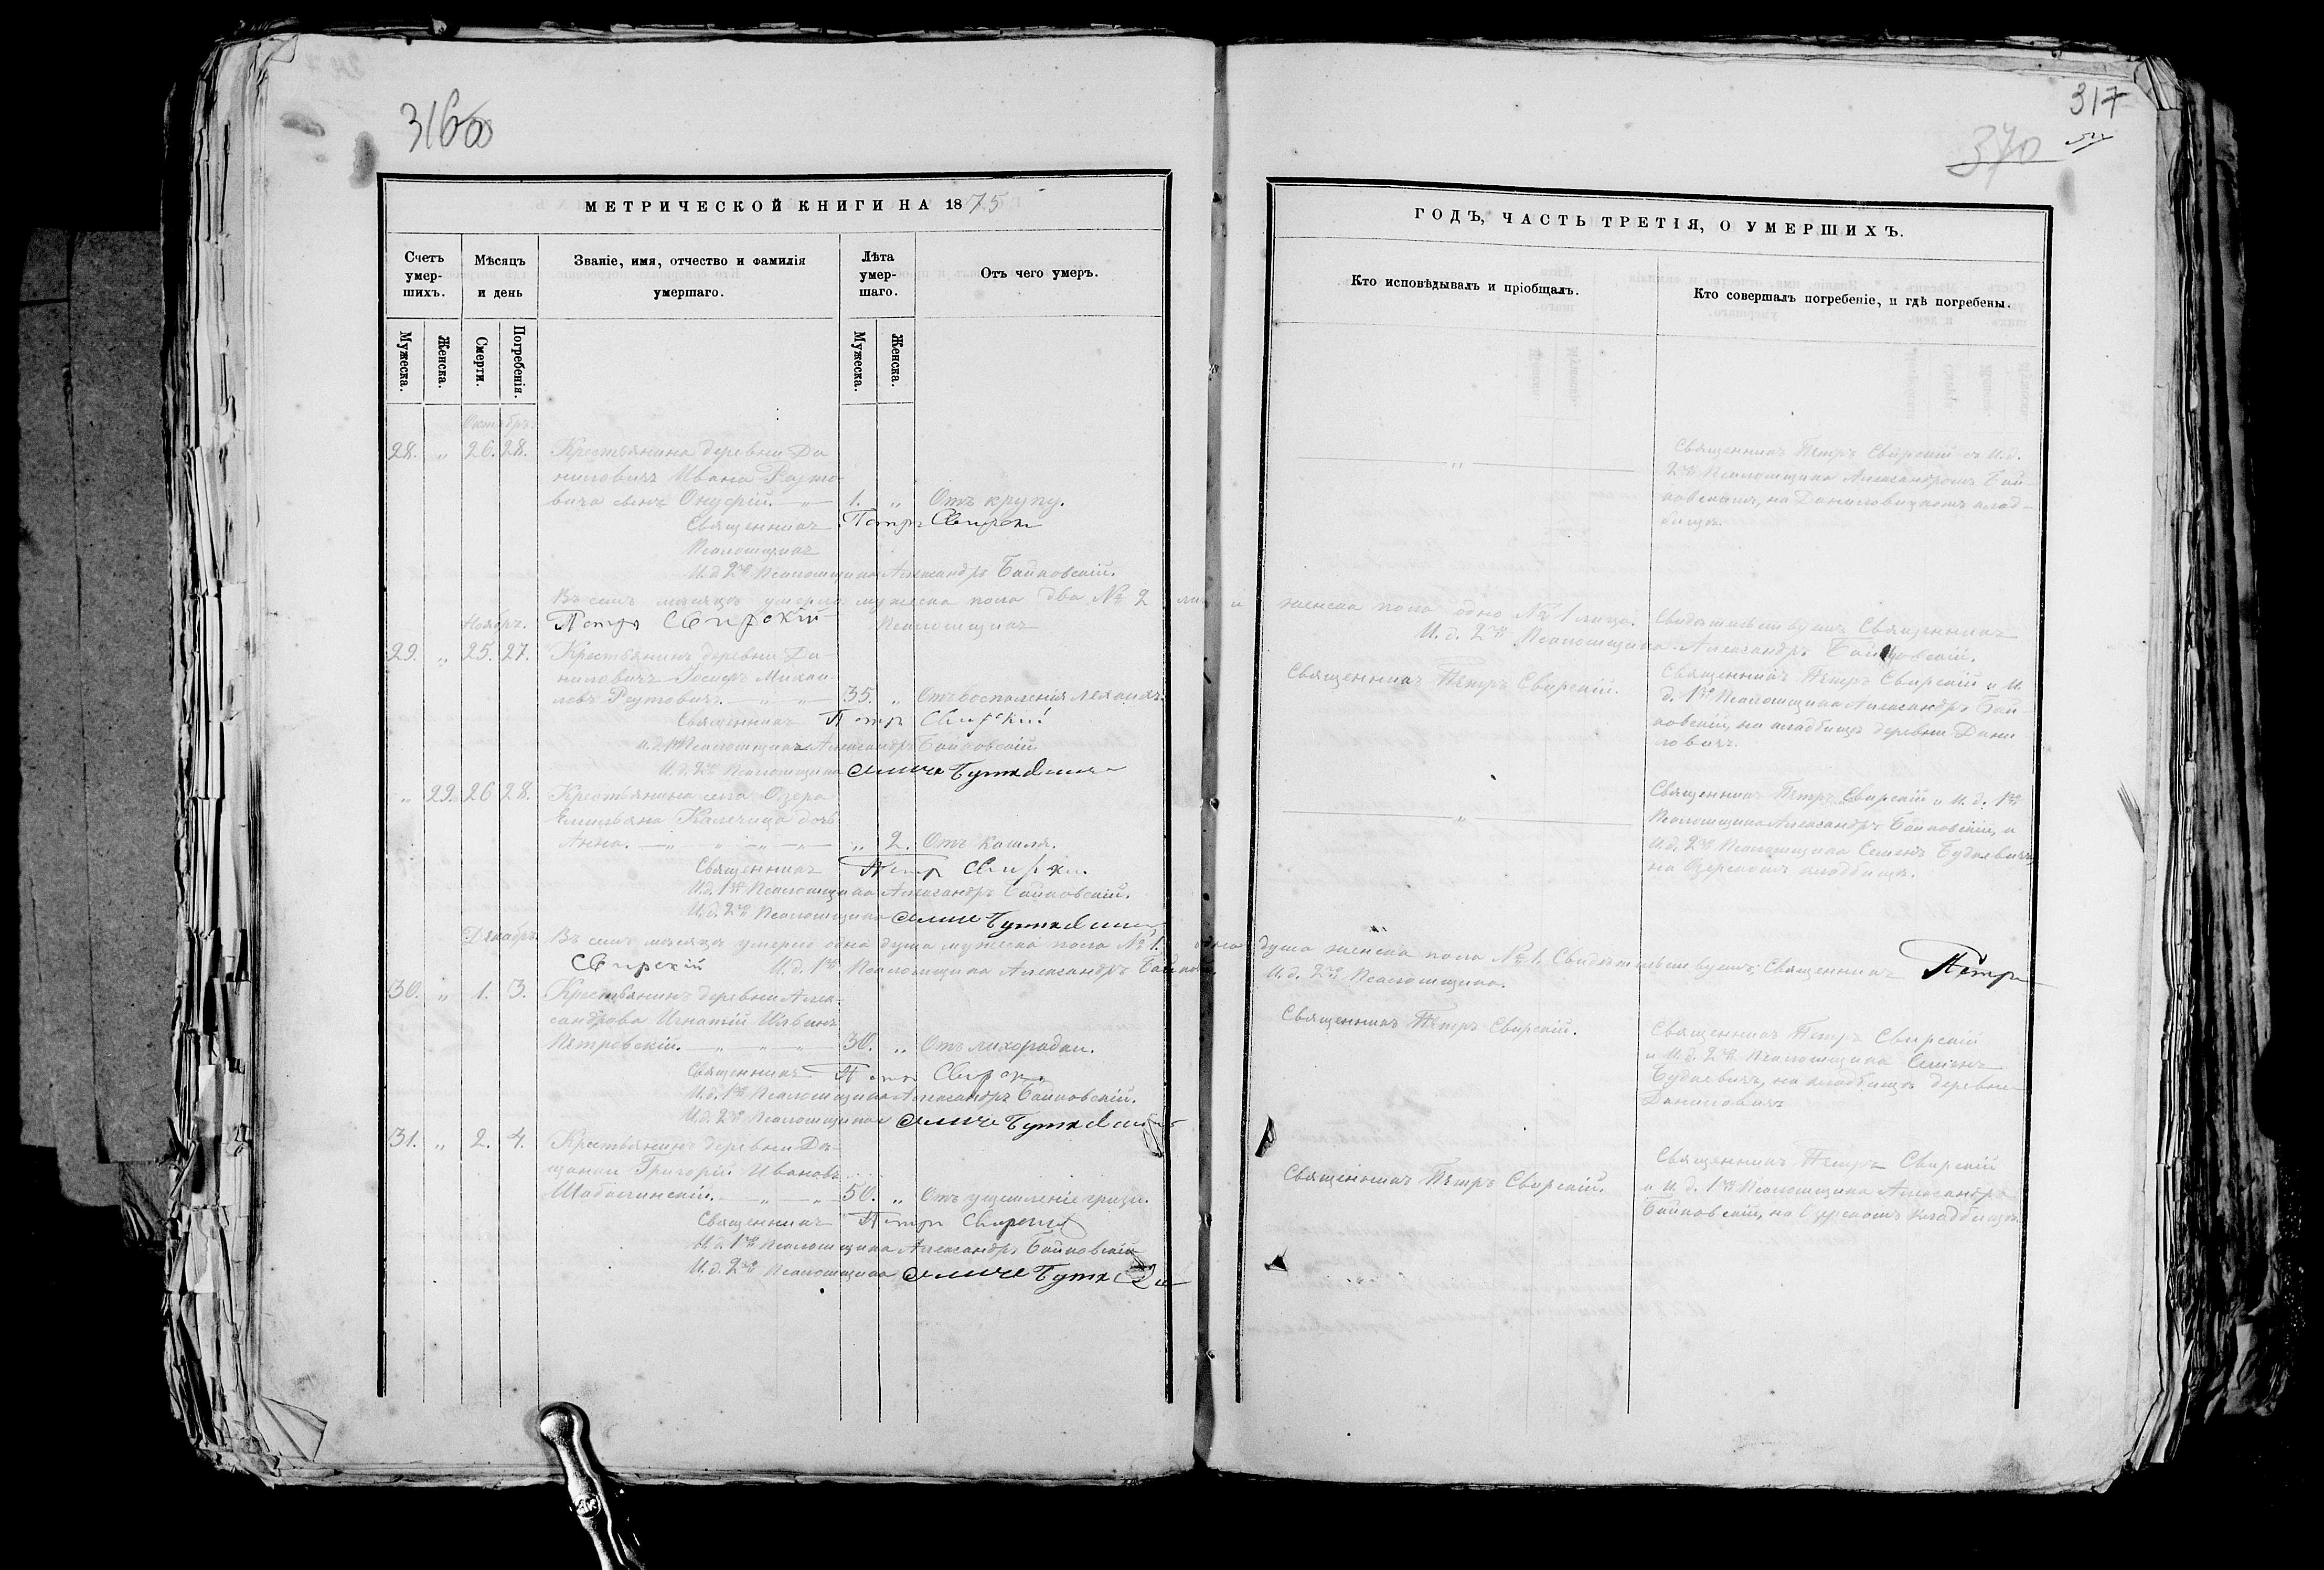 316об
МЕТРИЧЕСКОЙ КНИГИ НА 1875
Счетъ умер-шихъ.
Мѣсяцъ и день
Званіе, имя, отчество и фамилія умершаго.
Лѣта умер-шаго.
Отъ чего умеръ.
Мужеска.
Женска.
Смерти.
Погребенія.
Мужеска.
Женска.
Октябрь.
28. „ 26. 28. Крестьянина деревни Да
ниловичъ Ивана Реуто
вича сынъ Онуфрій. — „ — 1. „ Отъ крупу.
Священникъ Петръ Свирскі
Псаломщикъ
И. д. 2го Псаломщика Александръ Байковскій.
Въ семъ мѣсяцѣ умерло мужеска пола два № 2 и
Ноябрь. Петръ Свирскій Псаломщикъ
29. „ 25. 27. Крестьянинъ деревни Да-
ниловичъ Іосифъ Михаи
ловъ Реутовичъ. — „ — „ 35. „ Отъ воспаленія легкихъ.
Священникъ Петръ Свирскій
и. д. 1го Псаломщика Александръ Байковскій.
И. д. 2го Псаломщика
„ 22. 26 28. Крестьянина села Озера
Емильяна дочь
Анна. — „ — „ — „ — „ 2. Отъ кашля.
Священникъ Петръ Свирскі
И. д. 1го Псаломщика Александръ Байковскій.
И. д. 2го Псаломщика
Декабрь. Въ семъ мѣсяцѣ умерло одна душа мужеска пола № 1. одна
Свирскій И. д. 1го Псаломщика Александръ Байков
30. „ 1. 3. Крестьянинъ деревни Алек-
сандрова Игнатій Ильинъ
Петровскій. — „ — „ — „ — 30. „ Отъ лихорадки.
Священникъ Петръ Свирск
И. д. 1го Псаломщика Александръ Байковскій.
И. д. 2го Псаломщика
31. „ 2. 4. Крестьянинъ деревни Да-
Григорій Ивановъ
Шабалинскій. — „ — „ 50. „ Отъ ущемленіе грыжи.
Священникъ Петръ Свирскій
И. д. 1го Псаломщика Александръ Байковскій
И. д. 2го Псаломщика
317
370
ГОДЪ, ЧАСТЬ ТРЕТІЯ, О УМЕРШИХЪ.
Кто исповѣдывалъ и пріобщалъ.
Кто совершалъ погребеніе, и гдѣ погребены.
„
Священникъ Петръ Свирскій съ И. д.
2го Псаломщика Александромъ Бай-
ковскимъ, на Даниловицкомъ клад-
бищѣ.
женска пола одно № 1 лицо. Свидѣтельствуемъ Священникъ
И. д. 2го Псаломщика Александръ Байковскій.
Священникъ Петръ Свирскій.
Священникъ Петръ Свирскій и И.
д. 1го Псаломщика Александръ Бай-
ковскій, на кладбищѣ деревни Дани
ловичъ.
„
Священникъ Петръ Свирскій и И. д. 1го
Псаломщика Александръ Байковскій, и
И. д. 2го Псаломщика Семенъ Будкевичъ
на Озерскомъ кладбищѣ.
душа женска пола № 1. Свидѣтельствуемъ: Священникъ Петръ
И. д. 2го Псаломщика.
Священникъ Петръ Свирскій.
Священникъ Петръ Свирскій
и И. д. 2го Псаломщика Семенъ
Будкевичъ, на кладбищѣ деревни
Даниловичъ
Священникъ Петръ Свирскій.
Священникъ Петръ Свирскій
и И. д. 1го Псаломщика Александръ
Байковскій, на Озерскомъ кладбищѣ.